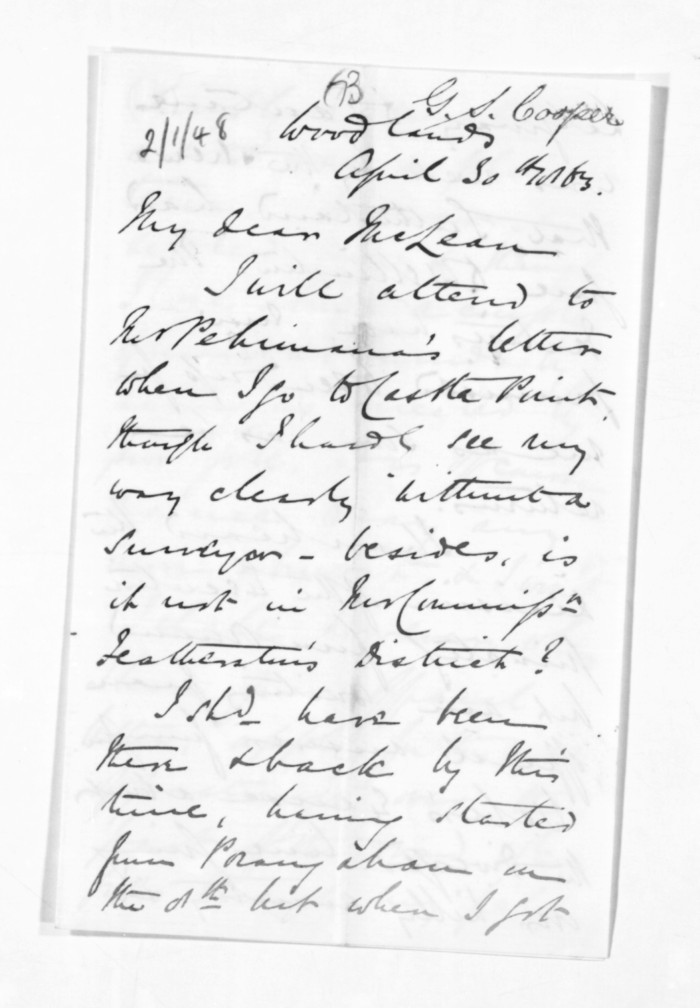 63 G. S. Cooper
2/1/48
Woodlands
April 30th/63.
My dear McLean
I will attend to
Mr Pehimana's letter
when I go to Castle Point,
though I hardly see my
way clearly without a
surveyor - besides, is
it not in Mr Commissn
Featherston's District?
I shd have been
there & back by this
time, having started
from Porangahau on
the 8th but when I got